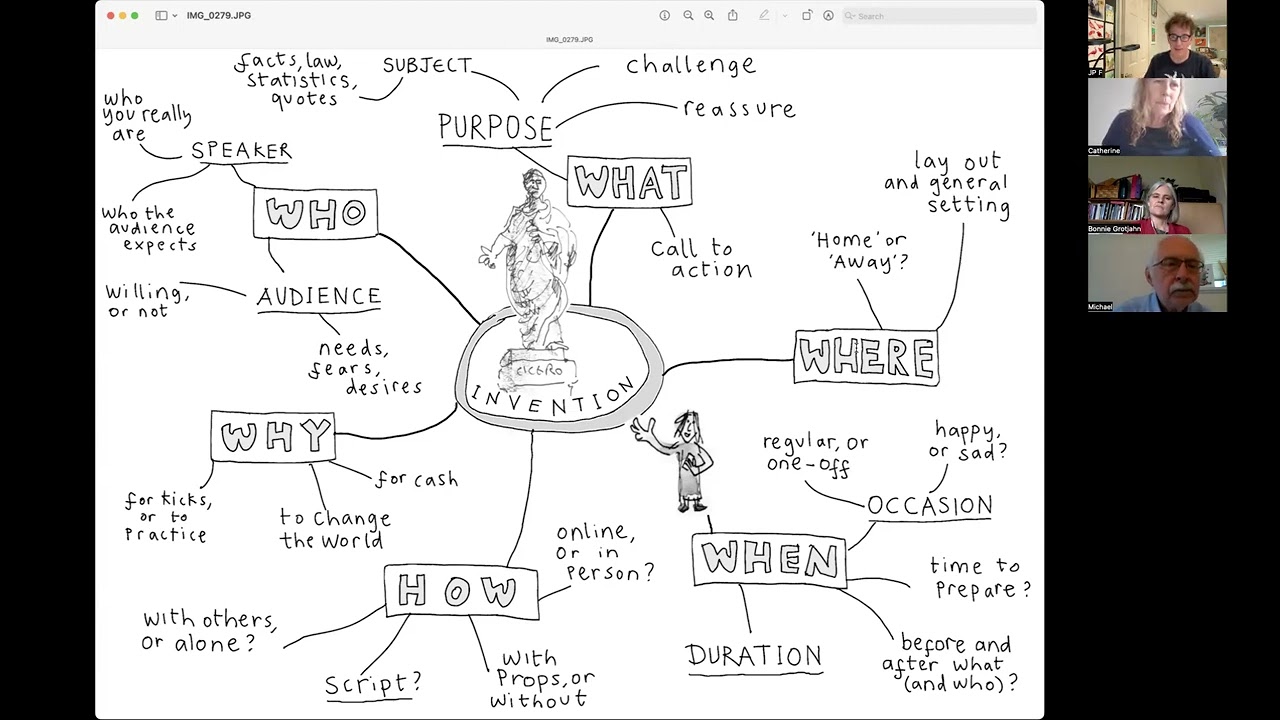 IMG_0279.JPG
Search
IMG_0279.JPG
facts, law,
statistics,
quotes
SUBJECT
challenge
reassure
PURPOSE
WHAT
Call to
action
who
you really
are
SPEAKER
who the
audience
expects
WHO
willing,
or not
AUDIENCE
needs,
fears,
desires
lay out
and general
setting
'Home' or
'Away'?
WHERE
CICERO
INVENTION
WHY
for kicks,
or to
practice
to change
the world
for cash
HOW
online,
or in
person?
with others,
or alone?
Script?
with
props, or
without
regular, or
one-off
happy,
or sad?
OCCASION
WHEN
time to
prepare?
DURATION
before and
after what
(and who)?
JP F
Catherine
Bonnie Grotjahn
Michael